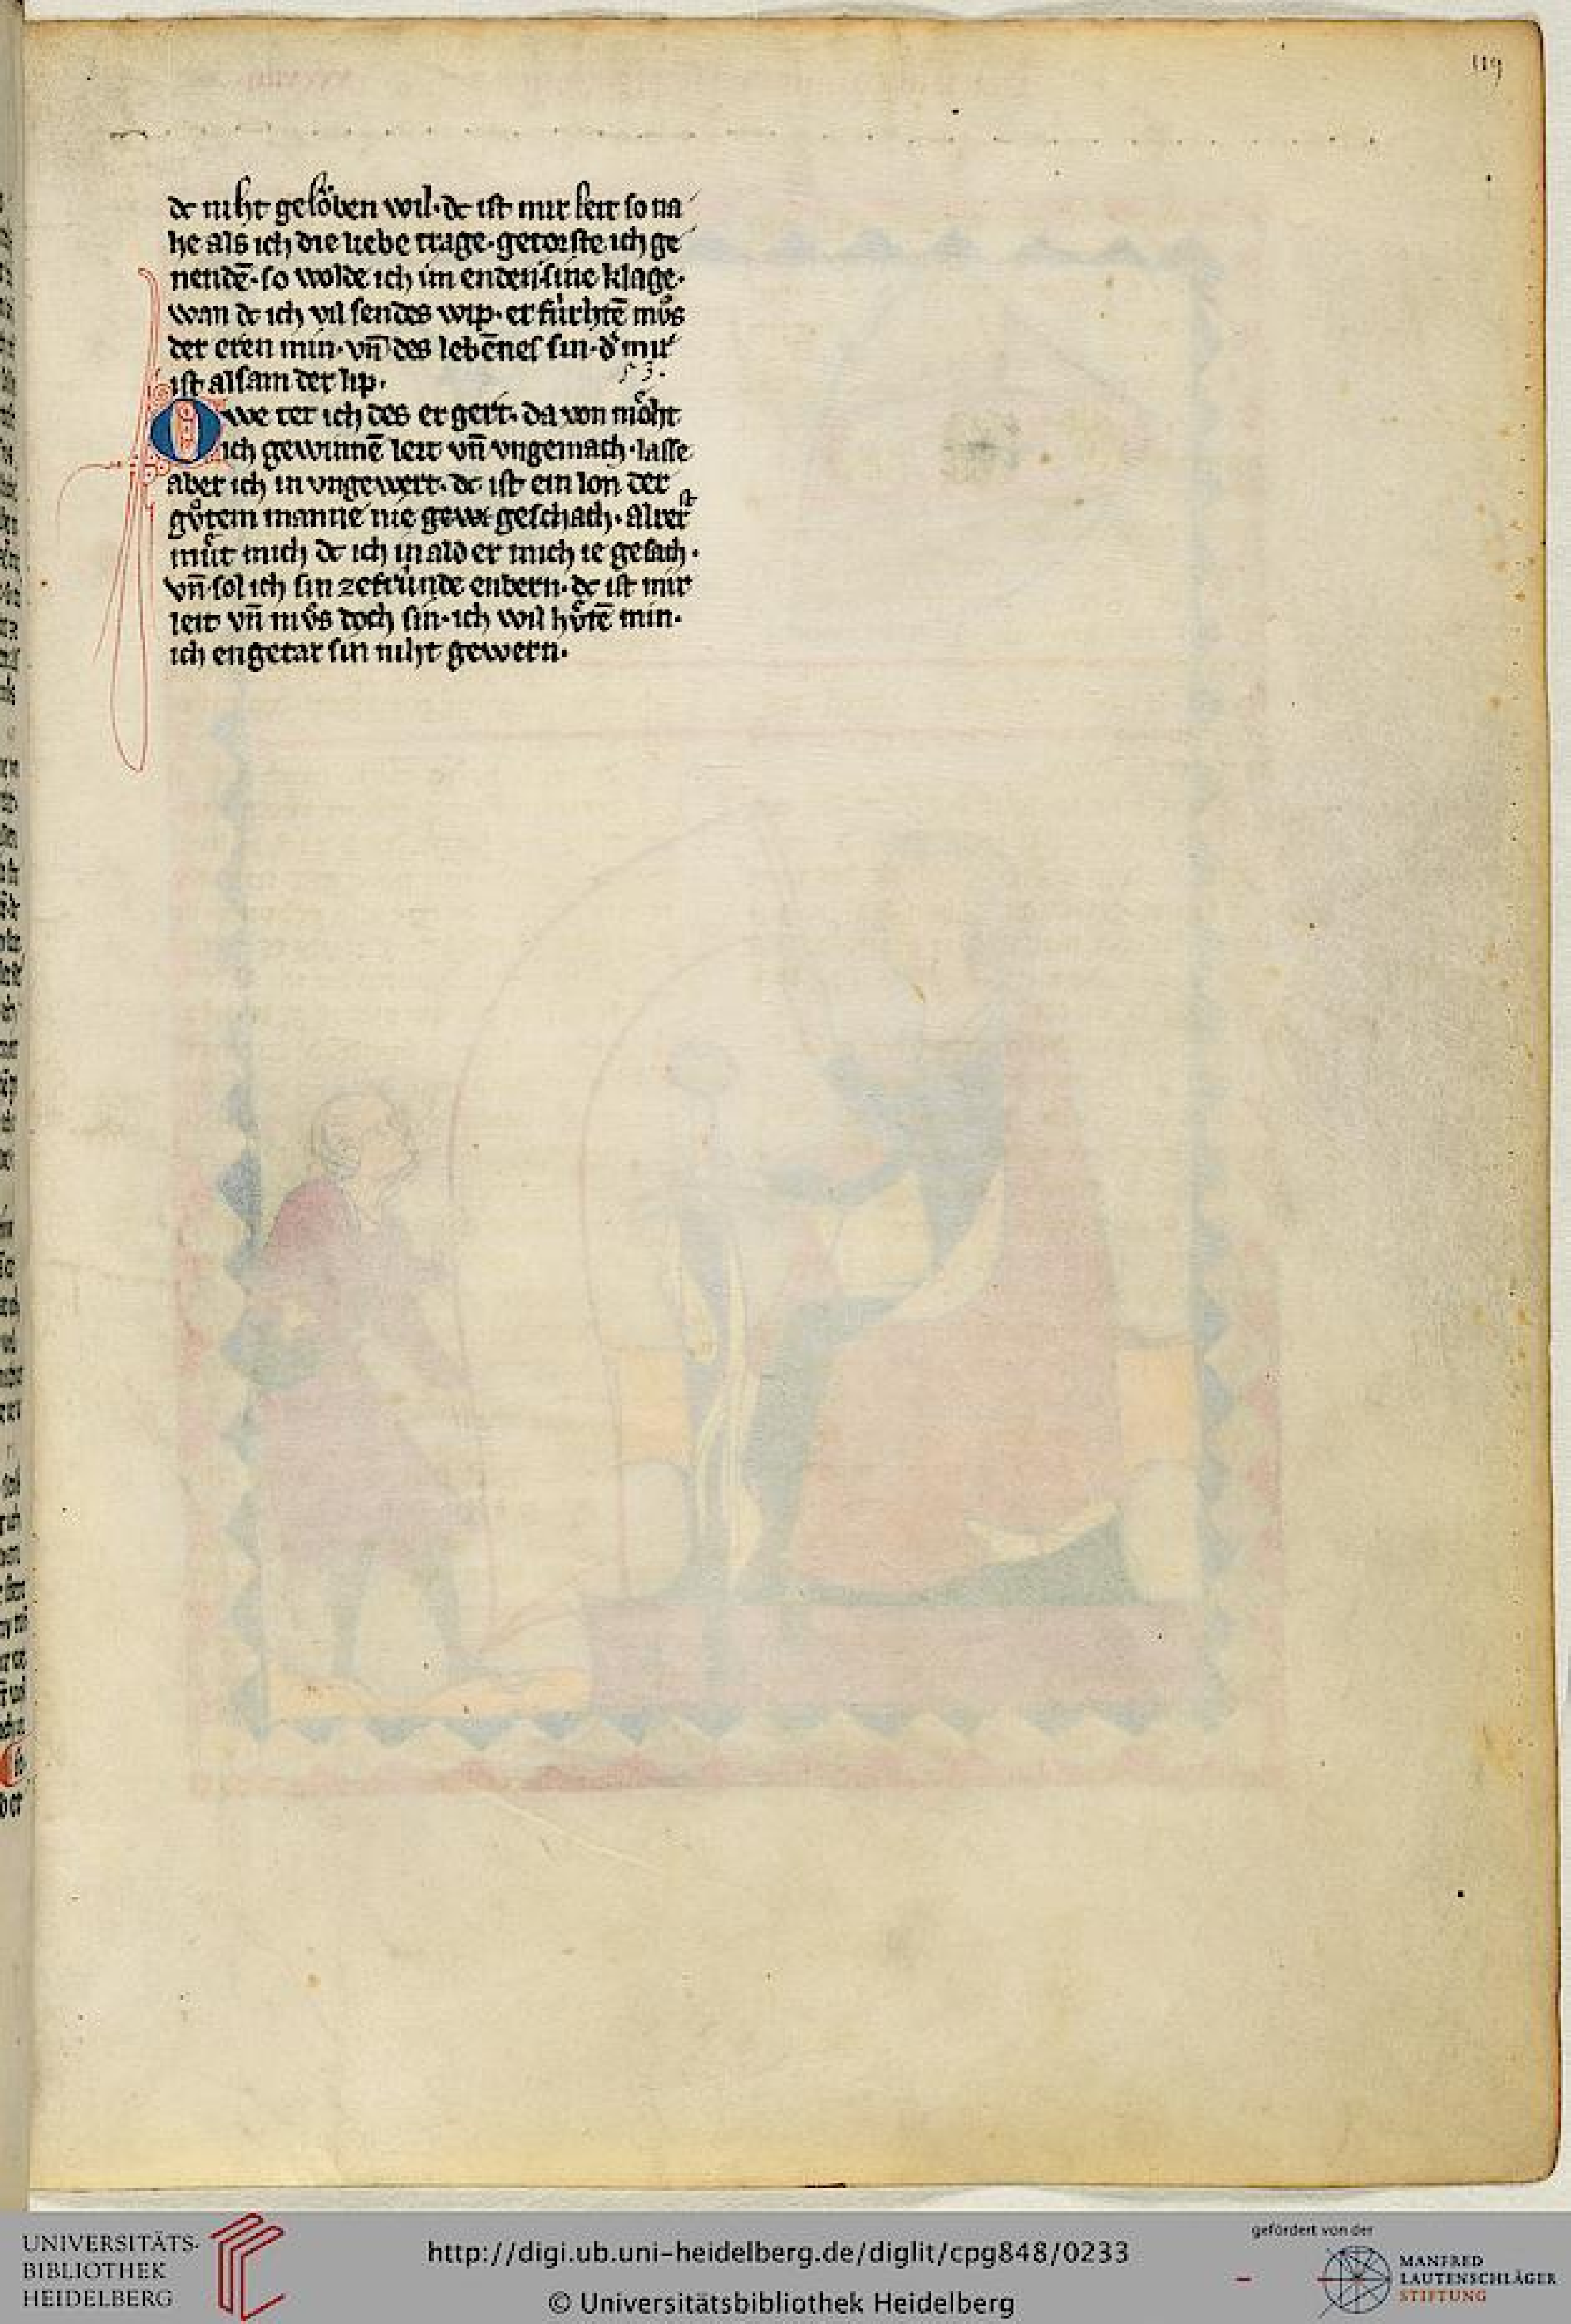 119
dc niht gelöben wil·dc ist mir leit so na
he als ich die liebe trage·getorste ich ge
nendē·so wolde ich im enden sine klage·
wan dc ich vil sendes wip·er fúrhtē můs
der eren min·vn̄ des lebēnes sin·d͛ mir
ist alsam der lip·
53.
Owe tet ich des er gert·da von möht
ich gewinnē leit vn̄ vngemach·lasse
aber ich in vngewert·dc ist ein lon der
gůtem manne nie gew geschach·alrerst
mu̍t mich dc ich in ald er mich ie gesach·
vn̄ sol ich sin ze frúnde enbern·dc ist mir
leit vn̄ můs doch sin·ich wil hůtē min·
ich engetar sin niht gewern·
UNIVERSITÄTS-
BIBLIOTHEK
HEIDELBERG
http://digi.ub.uni-heidelberg.de/diglit/cpg848/0233
© Universitätsbibliothek Heidelberg
gefördert von der
MANFRED
LAUTENSCHLÄGER
STIFTUNG